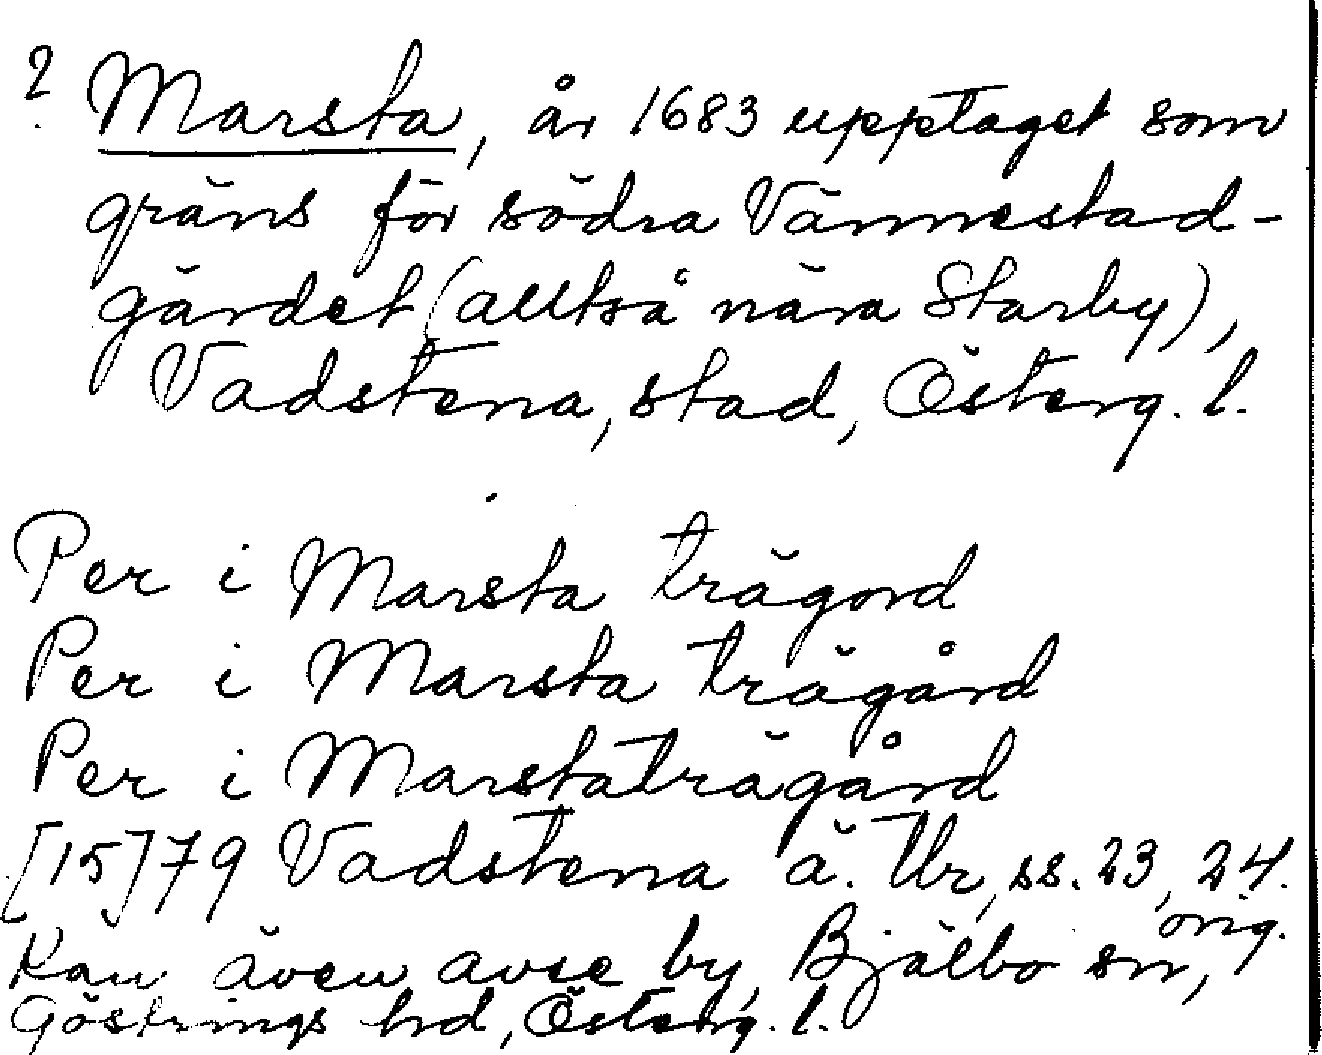 ? Marsta, år 1683 upptaget som
gräns för södra Vännestad-
gärdet (alltså nära Starby),
Vadstena, stad, Österg. l.
Per i Marsta trägord
Per i Marsta trägård
Per i Marstaträgård
[15]79 Vadstena ä. tb, ss. 23, 24.
orig.
Kan även avse by, Bjälbo sn,
Göstrings hd, Österg. l.